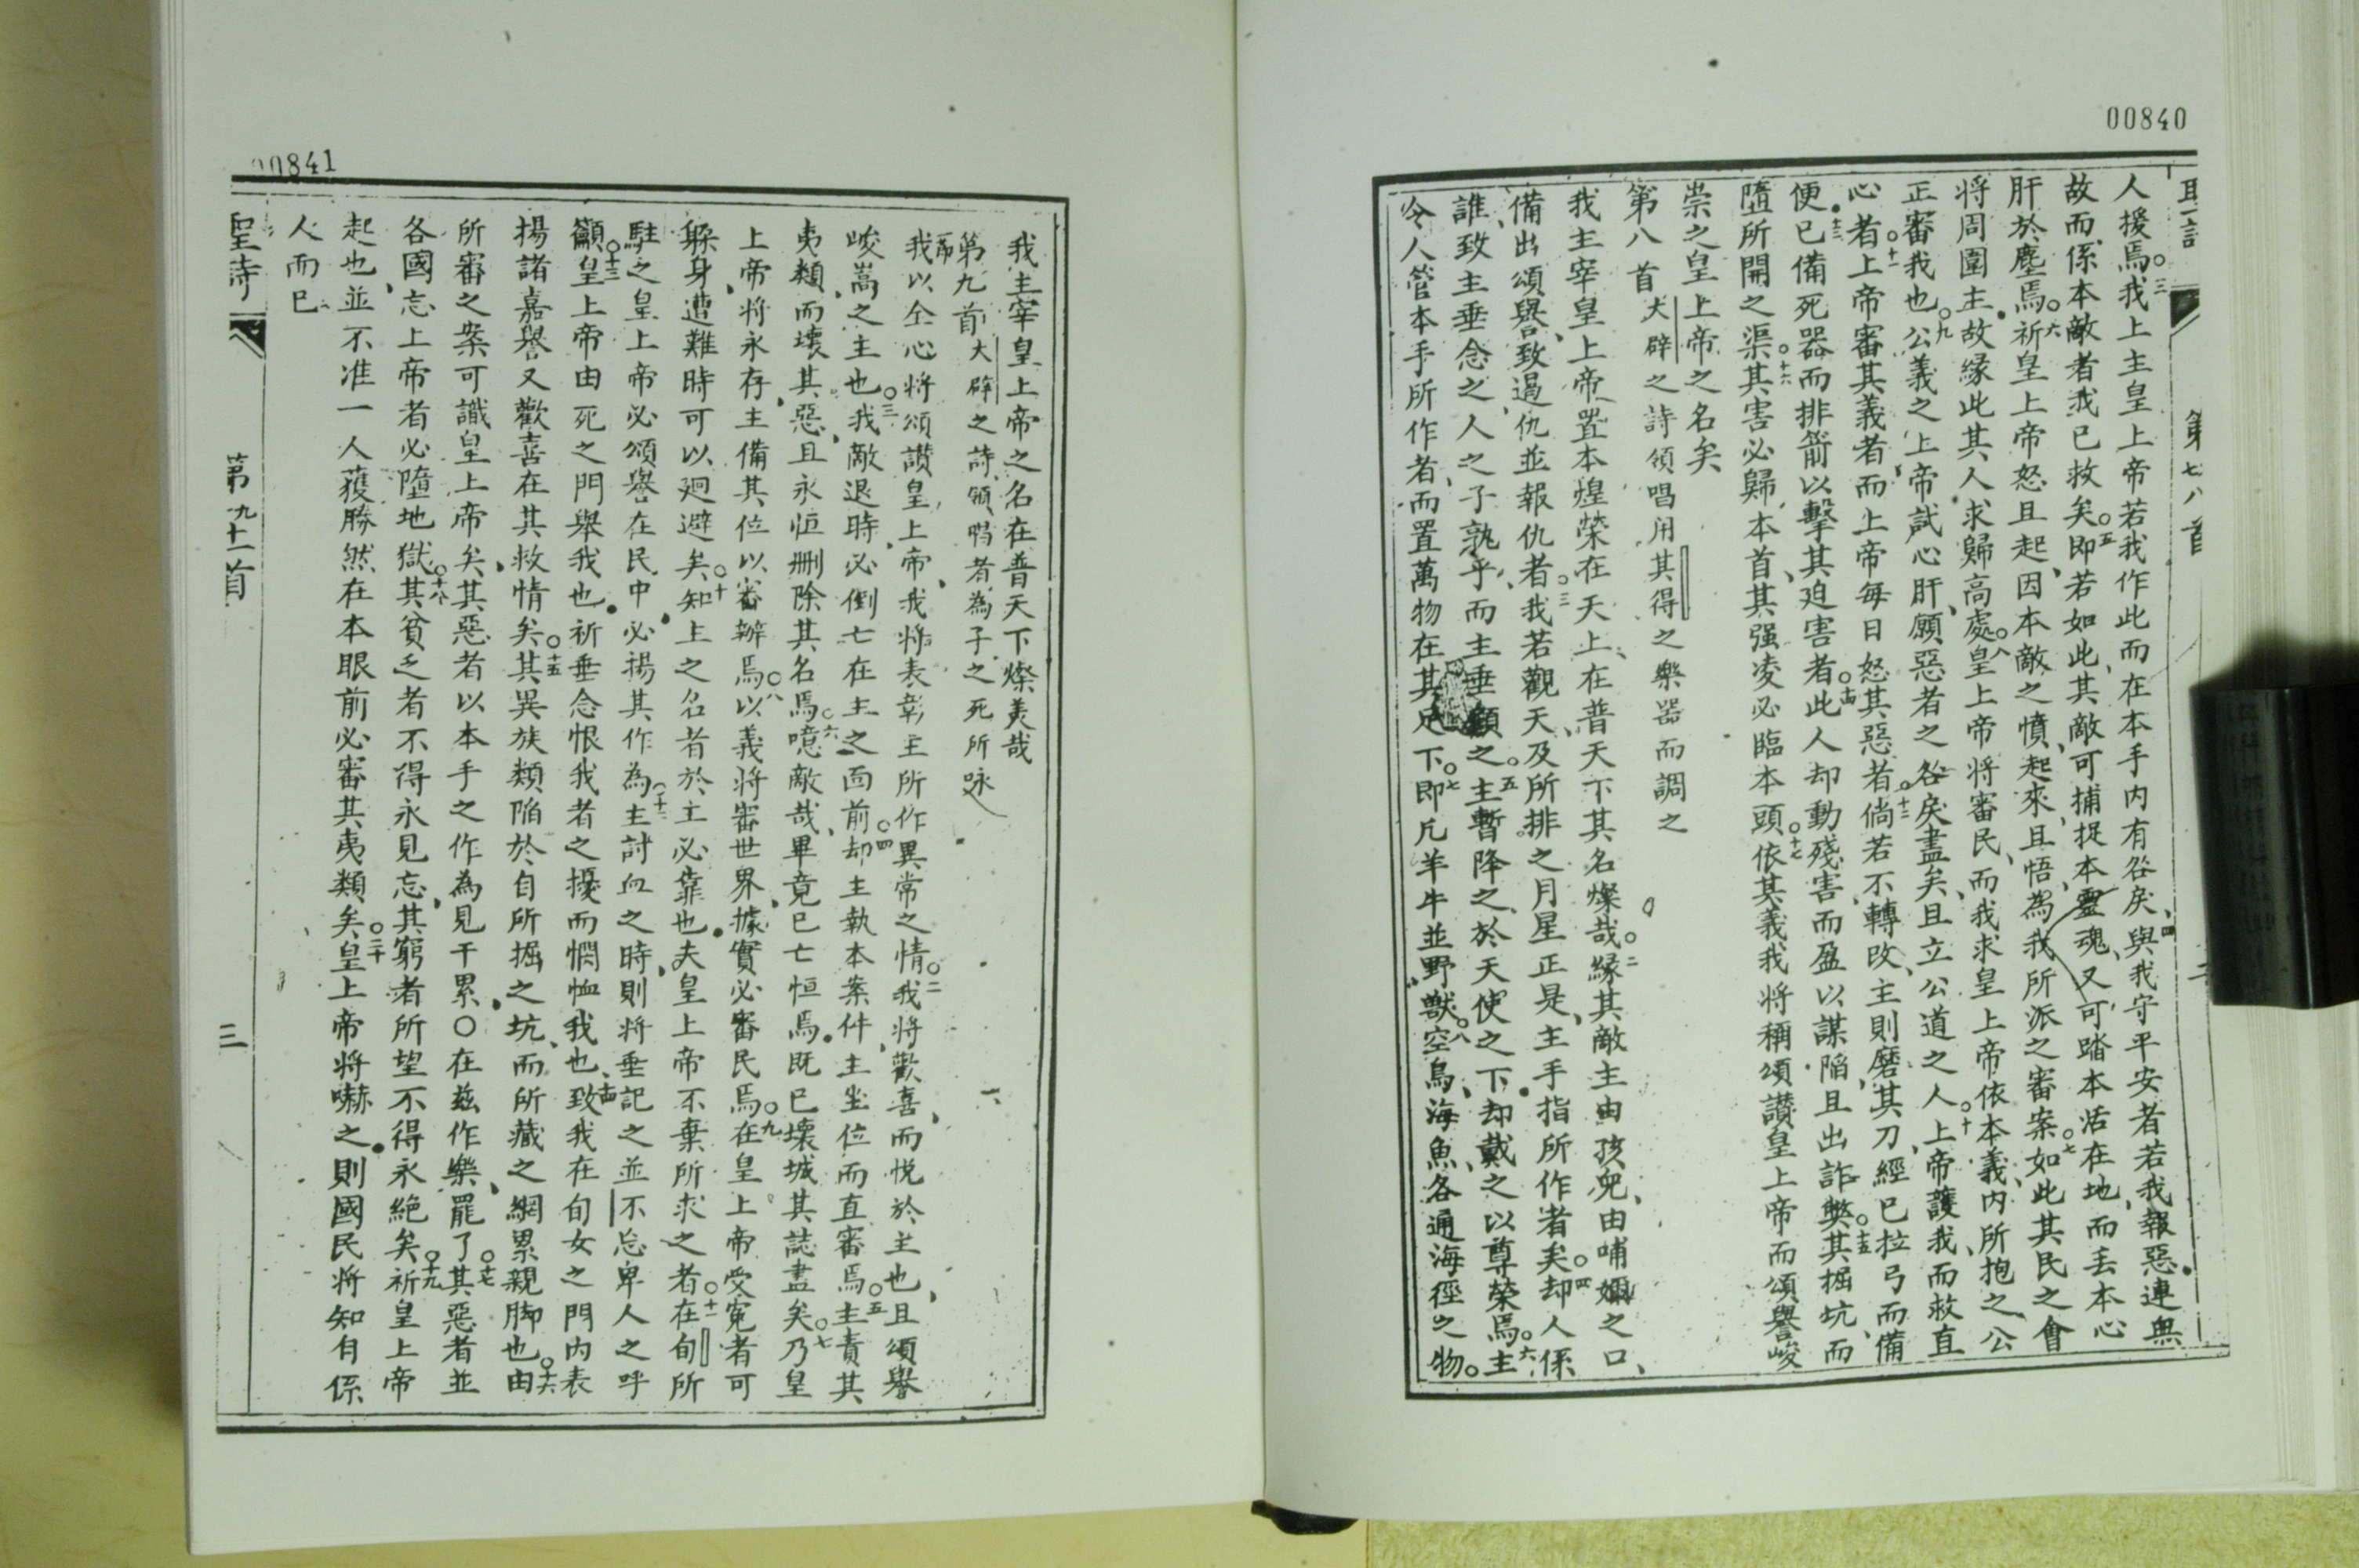 00840
聖詩
第七八首
人援焉○三我上主皇上帝若我作此而在本手内有咎戾○四與我守平安者若我報惡連無
故而係本敵者我已救矣○五即若如此其敵可捕捉本靈魂又可踏本活在地而丟本心
肝於塵焉○六祈皇上帝怒且起因本敵之憤起來且悟為我所派之審案○七如此其民之會
將周圍主故緣此其人求歸高處○八皇上帝將審民而我求皇上帝依本義内所抱之公
正審我也○九公義之上帝試心肝願惡者之咎戾盡矣且立公道之人○十上帝護我而救直
心者○十一上帝審其義者而上帝每日怒其惡者○十二倘若不轉改主則磨其刀經已拉弓而備
便○十三已備死器而排箭以擊其迫害者○十四此人却動殘害而盈以謀陷且出詐弊○十五其掘坑而
墮所開之渠○十六其害必歸本首其强凌必臨本頭○十七依其義我將稱頌讚皇上帝而頌譽峻
崇之皇上帝之名矣
第八首 大辟之詩領唱用其得之樂器而調之
我主宰皇上帝置本煌榮在天上在普天下其名燦哉○二緣其敵主由孩兒由哺嬭之口
備出頌譽致遏仇並報仇者○三我若觀天及所排之月星正是主手指所作者矣○四却人係
誰致主垂念之人之子孰乎而主垂顧之○五主暫降之於天使之下却戴之以尊榮焉○六主
令人管本手所作者而置萬物在其足下○七即凡羊牛並野獸○八空鳥海魚各通海徑之物○
00841
我主宰皇上帝之名在普天下燦美哉
第九首 大辟之詩領唱者為子之死所咏
我以全心將頌讚皇上帝我將表彰主所作異常之情○二我將歡喜而悦於主也且頌譽
峻嵩之主也○三我敵退時必倒亡在主之面前○四却主執本案件主坐位而直審焉○五主責其
夷類而壞其惡且永恒删除其名焉○六噫敵哉畢竟已亡恒焉既已壞城其誌盡矣○七乃皇
上帝將永存主備其位以審辦焉○八以義將審世界據實必審民焉○九在皇上帝受寃者可
躲身遭難時可以廻避矣○十知主之名者於主必靠也夫皇上帝不棄所求之者○十一在旬所
駐之皇上帝必頌譽在民中必揚其作為○十二主討血之時則將垂記之並不忘卑人之呼
籲○十三皇上帝由死之門舉我也祈垂念恨我者之擾而憫恤我也○十四致我在旬女之門内表
揚諸嘉譽又歡喜在其救情矣○十五其異族類陷於自所掘之坑而所藏之網累親脚也○十六由
所審之案可識皇上帝矣其惡者以本手之作為見干累○在茲作樂罷了○十七其惡者並
各國忘上帝者必墮地獄○十八其貧乏者不得永見忘其窮者所望不得永絕矣○十九祈皇上帝
起也並不准一人獲勝然在本眼前必審其夷類矣○二十皇上帝將嚇之則國民將知自係
人而已
聖詩
第九十首
三